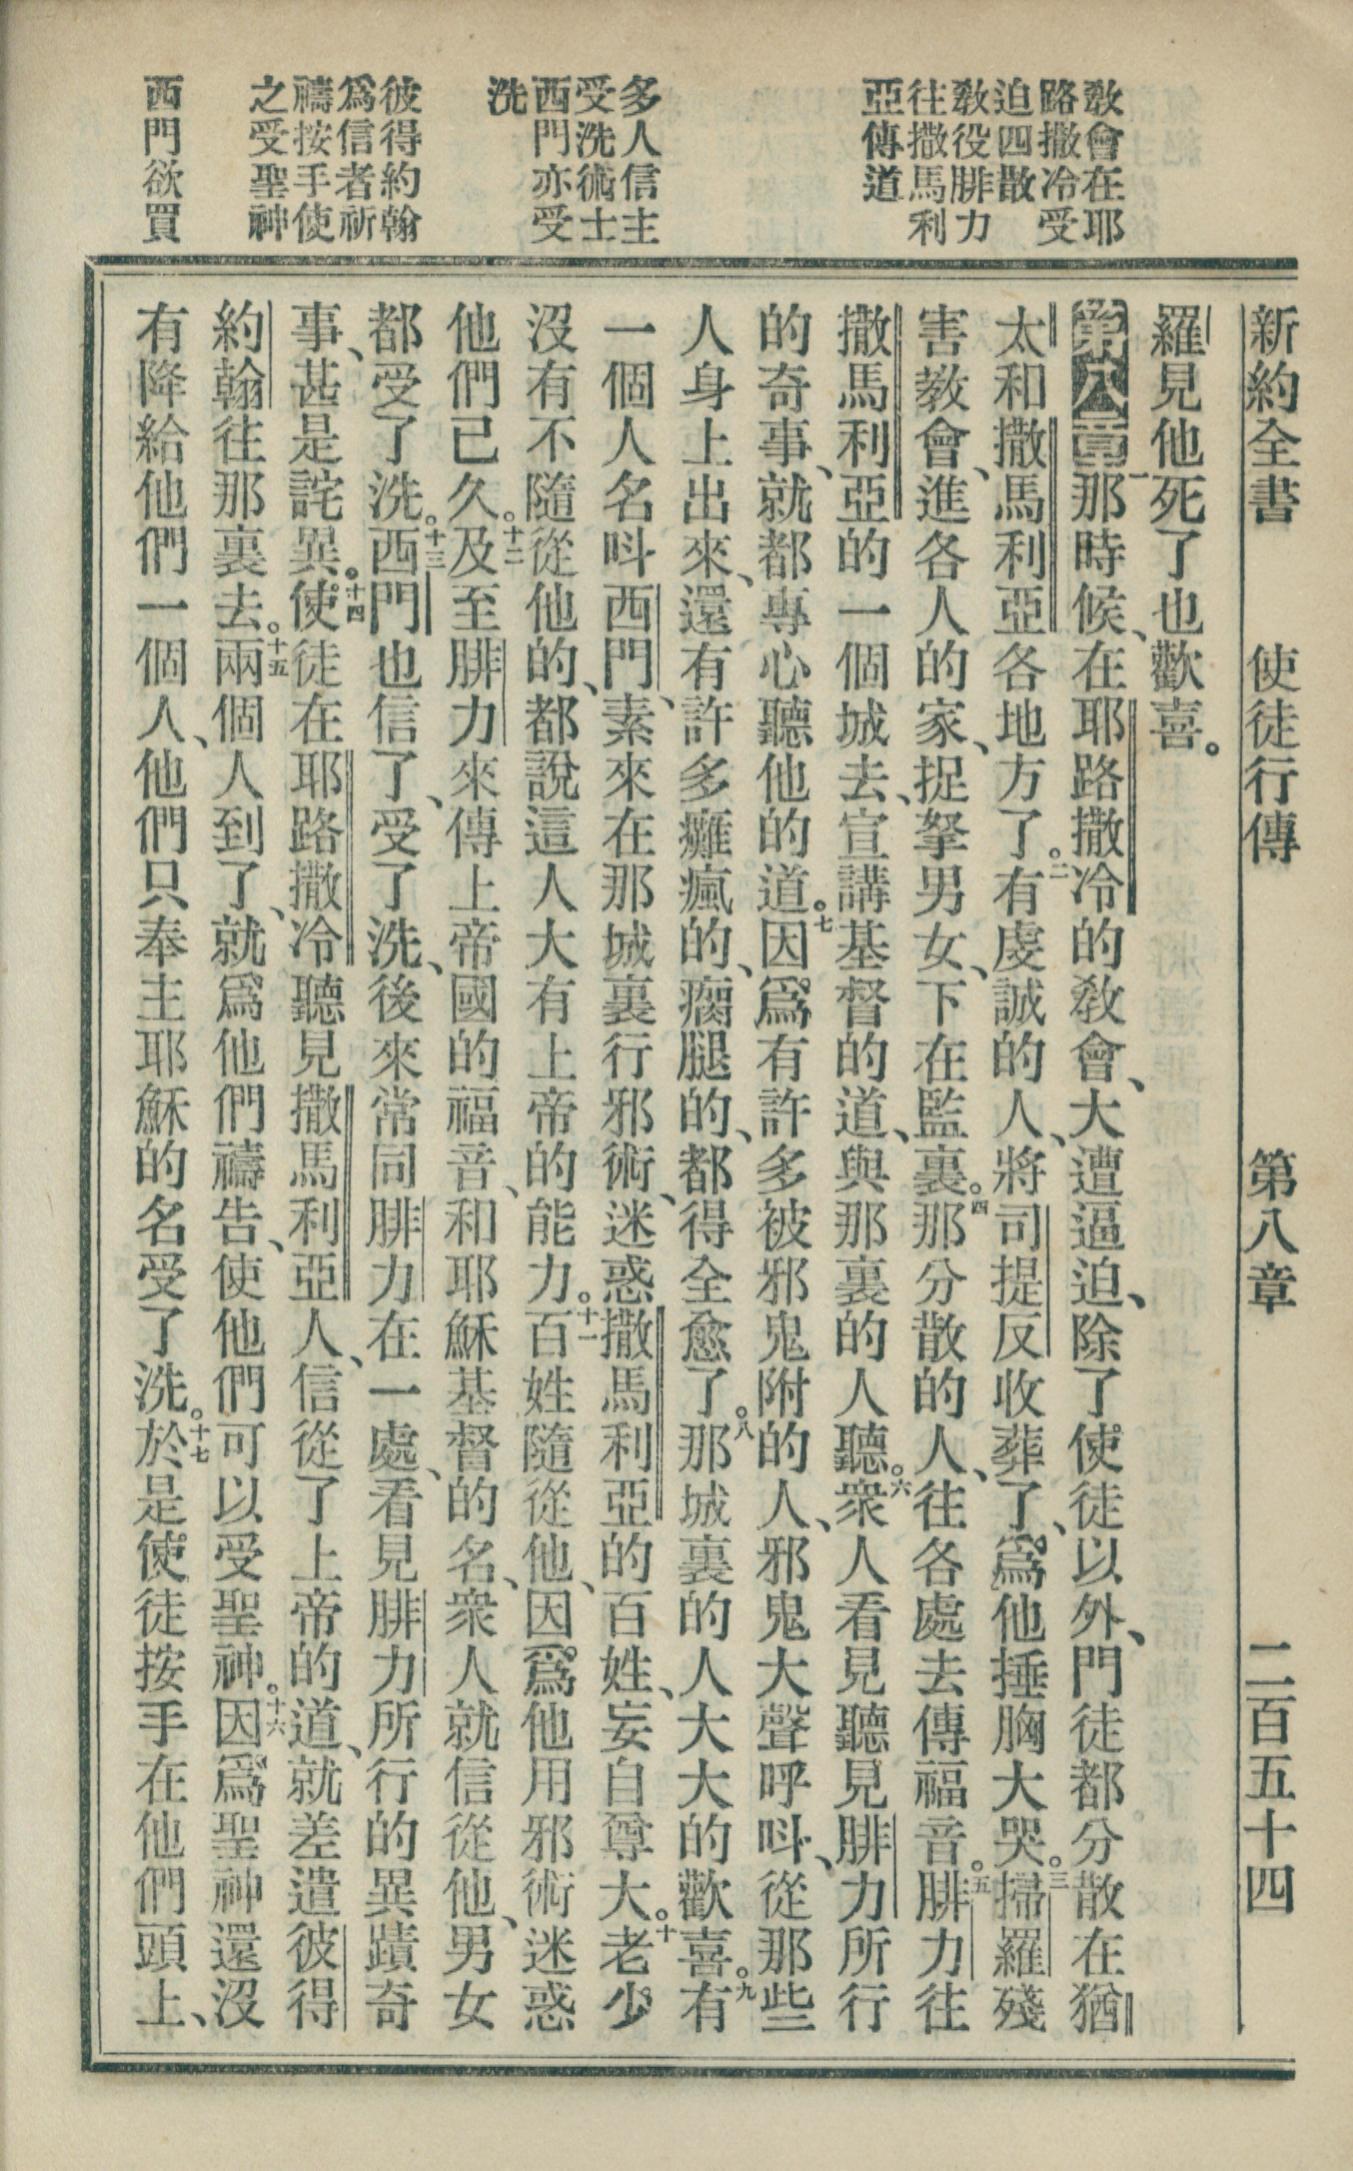 敎會在耶
路撒冷受
迫四散
敎役腓力
往撒馬利
亞傳道
多人信主
受洗術士
西門亦受
洗
彼得約翰
爲信者祈
禱按手使
之受聖神
西門欲買
新約全書 使徒行傳 第八章 二百五十四
羅見他死了也歡喜。
第八章一那時候、在耶路撒冷的敎會、大遭逼迫、除了使徒以外、門徒都分散在猶
太和撒馬利亞各地方了。二有虔誠的人、將司提反收葬了、爲他捶胸大哭。三掃羅殘
害教會、進各人的家、捉拏男女、下在監裏。四那分散的人、往各處去傳福音。五腓力往
撒馬利亞的一個城去、宣講基督的道、與那裏的人聽。六衆人看見聽見腓力所行
的奇事、就都專心聽他的道。七因爲有許多被邪鬼附的人、邪鬼大聲呼呌、從那些
人身上出來、還有許多癱瘋的、瘸腿的、都得全愈了。八那城裏的人大大的歡喜。九有
一個人名呌西門、素來在那城裏行邪術、迷惑撒馬利亞的百姓、妄自尊大。十老少
沒有不隨從他的、都說這人大有上帝的能力。十一百姓隨從他、因爲他用邪術迷惑
他們已久。十二及至腓力來傳上帝國的福音、和耶穌基督的名、衆人就信從他、男女
都受了洗。十三西門也信了、受了洗、後來常同腓力在一處、看見腓力所行的異蹟奇
事、甚是詫異。十四使徒在耶路撒冷聽見撒馬利亞人、信從了上帝的道、就差遣彼得
約翰往那裏去。十五兩個人到了、就爲他們禱告、使他們可以受聖神。十六因爲聖神還沒
有降給他們一個人、他們只奉主耶穌的名受了洗。十七於是使徒按手在他們頭上、